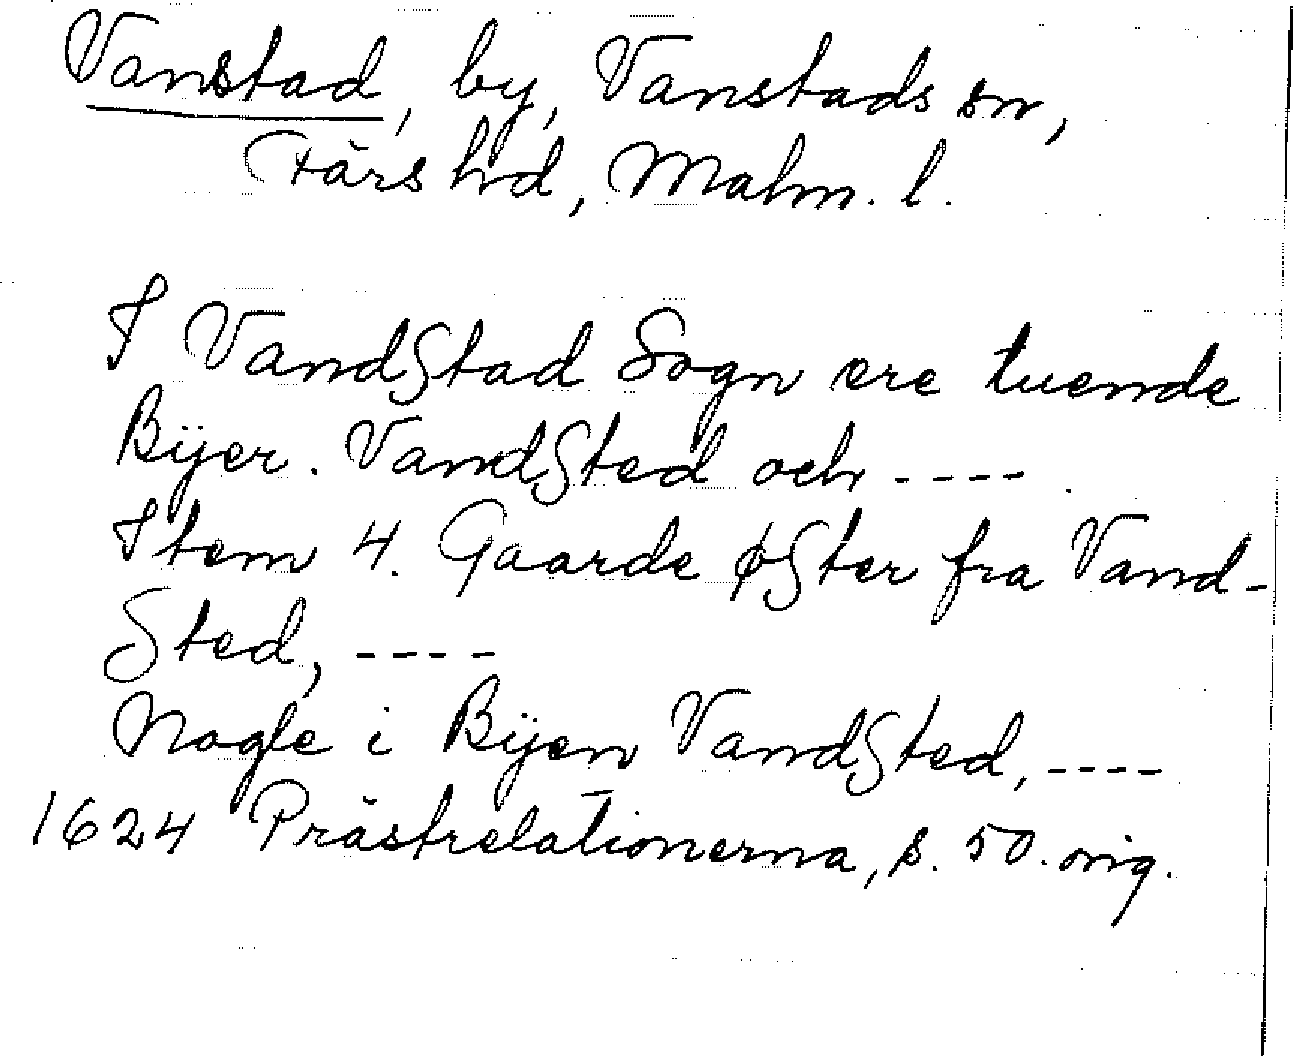 Vanstad, by, Vanstads sn,
Färs hd, Malm. l.
I VandStad Sogn ere tuende
Bÿer. VandSted och ----.
Item 4. Gaarde øSter fra Vand-
Sted, ----
Nogle i Bÿen VandSted, ----
1624 Prästrelationerna, s. 50. orig.